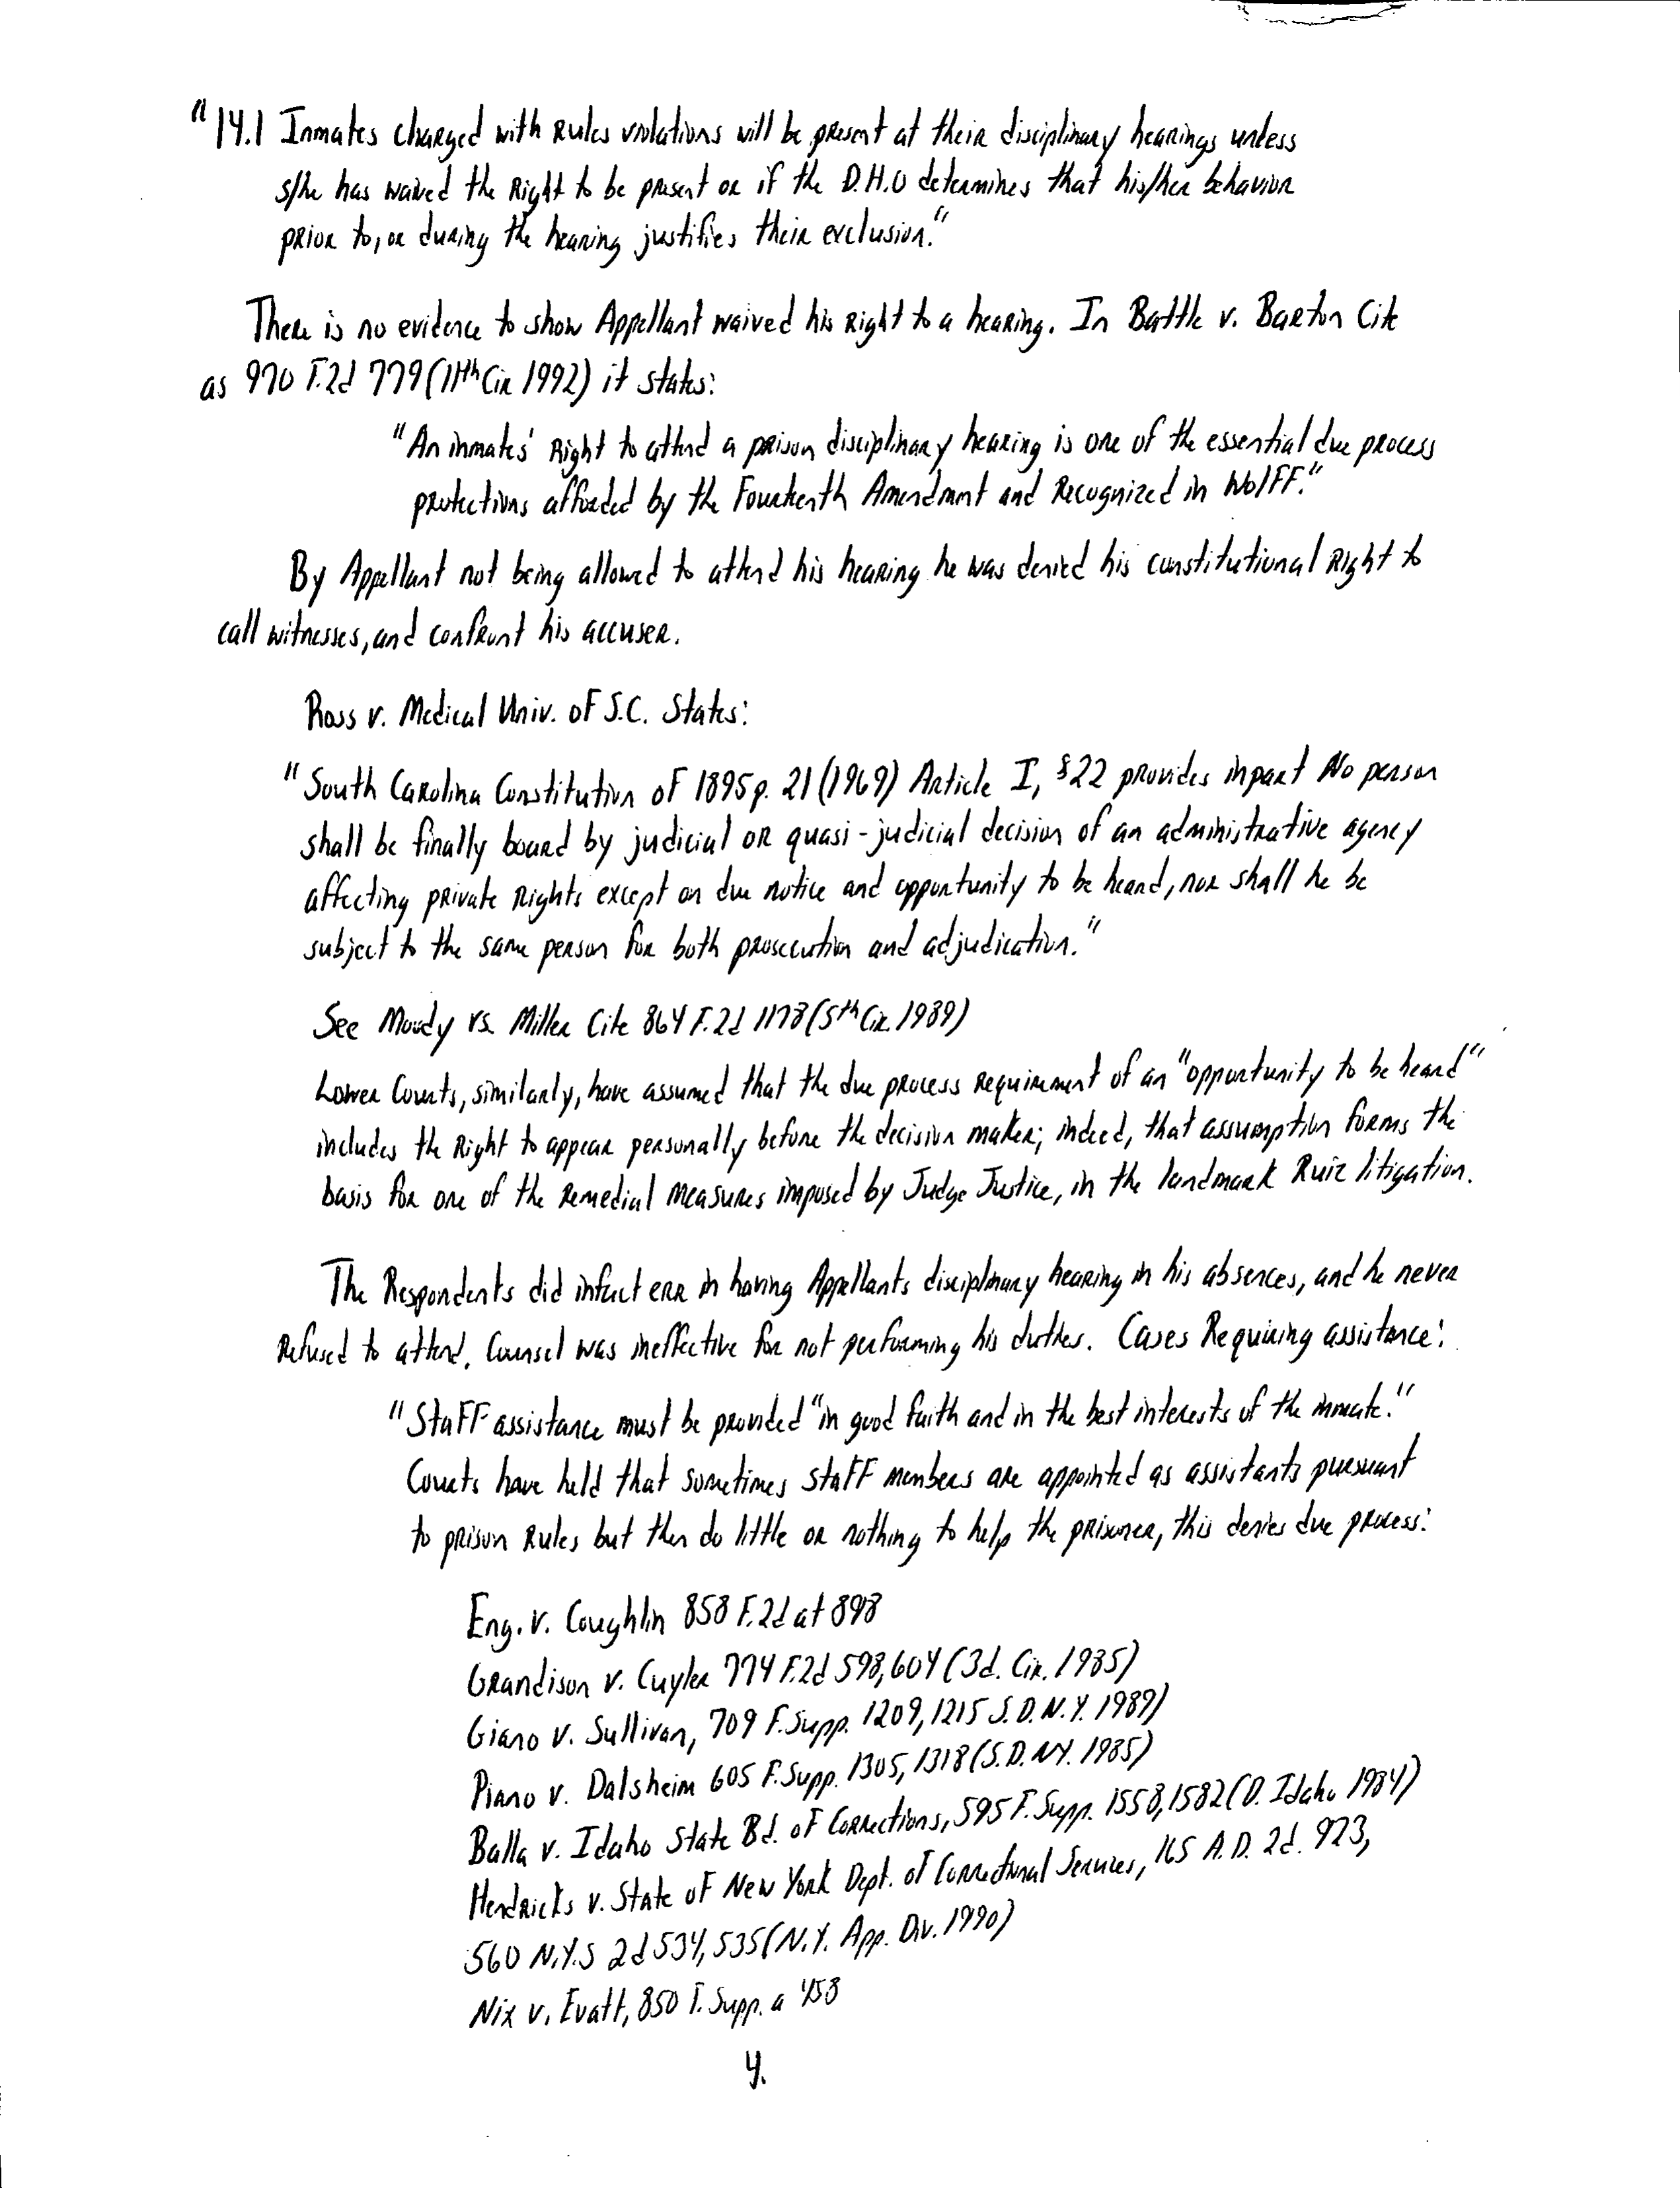 "14.1 Inmates charged with rules violations will be present at their disciplinary hearings unless
s/he has waived the right to be present or if the D.H.O determines that his/her behavior
prior to, or during the hearing justifies their exclusion."
There is no evidence to show Appellant waived his right to a hearing. In Battle v. Barton Cite
as 970 F.2d 779 (11th Cir 1992) it states:
"An inmates' right to attend a prison disciplinary hearing is one of the essential due process
protections afforded by the Fourteenth Amendment and recognized in Wolff."
By Appellant not being allowed to attend his hearing he was denied his constitutional right to
call witnesses, and confront his accuser.
Ross v. Medical Univ. of S.C. States:
"South Carolina Constitution of 1895 p. 21 (1969) Article I, §22 provides in part No person
shall be finally bound by judicial or quasi-judicial decision of an administrative agency
affecting private rights except on due notice and opportunity to be heard, nor shall he be
subject to the same person for both prosecution and adjudication."
See Moody vs. Miller Cite 864 F.2d 1178 (5th Cir. 1989)
Lower Courts, similarly, have assumed that the due process requirement of an "opportunity to be heard"
includes the right to appear personally before the decision maker; indeed, that assumption forms the
basis for one of the remedial measures imposed by Judge Justice, in the landmark Ruiz litigation.
The Respondents did infact err in having Appellants disciplinary hearing in his absences, and he never
refused to attend. Counsel was ineffective for not performing his duties. Cases Requiring assistance:
"Staff assistance must be provided "in good faith and in the best interests of the inmate."
Courts have held that sometimes staff members are appointed as assistants pursuant
to prison rules but then do little or nothing to help the prisoner, this denies due process:
Eng. v. Coughlin 858 F.2d at 898
Grandison v. Cuyler 774 F.2d 598, 604 (3d. Cir. 1985)
Giano v. Sullivan, 709 F. Supp. 1209, 1215 S.D.N.Y. 1989)
Piano v. Dalsheim 605 F. Supp. 1305, 1318 (S.D.NY. 1985)
Balla v. Idaho State Bd. of Corrections, 595 F. Supp. 1558, 1582 (D. Idaho 1984)
Hendricks v. State of New York Dept. of Correctional Services, 165 A.D. 2d. 923,
560 N.Y.S 2d 534, 535 (N.Y. App. Div. 1990)
Nix v. Evatt, 850 F. Supp. a 458
4.